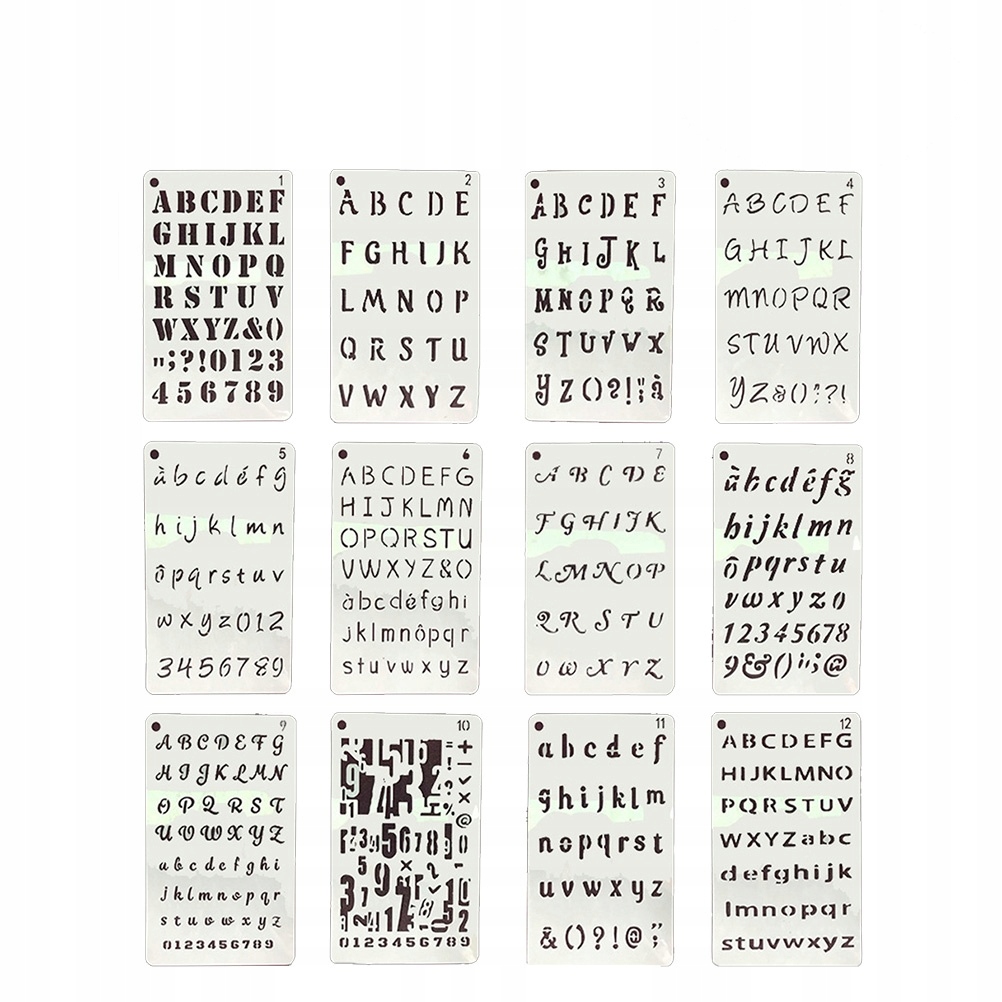 1
ABCDEF
GHIJKL
MNOPQ
RSTUV
WXYZ&()
";?!0123
456789
2
ABCDE
FGHIJK
LMNOP
QRSTU
VWXYZ
3
ABCDEF
GHIJKL
MNOPQR
STUVWX
YZ()?!;"à
4
ABCDEF
GHIJKL
MNOPQR
STUVWX
YZ&();"?!
5
àbcdéfg
hijklmn
ôpqrstuv
wxyz012
3456789
6
ABCDEFG
HIJKLMN
OPQRSTU
VWXYZ&()
àbcdéfghi
jklmnôpqr
stuvwxyz
7
ABCDE
FGHIJK
LMNOP
QRSTU
VWXYZ
8
àbcdéfg̃
hijklmn
ôpqrstu
vwxyz0
12345678
9&()";@
9
ABCDEFG
HIJKLMN
OPQRST
UVWXYZ
abcdefghi
jklmnopqr
stuvwxyz
0123456789
10
0123456789
11
abcdef
ghijklm
nopqrst
uvwxyz
&()?!@";
12
ABCDEFG
HIJKLMNO
PQRSTUV
WXYZabc
defghijk
lmnopqr
stuvwxyz